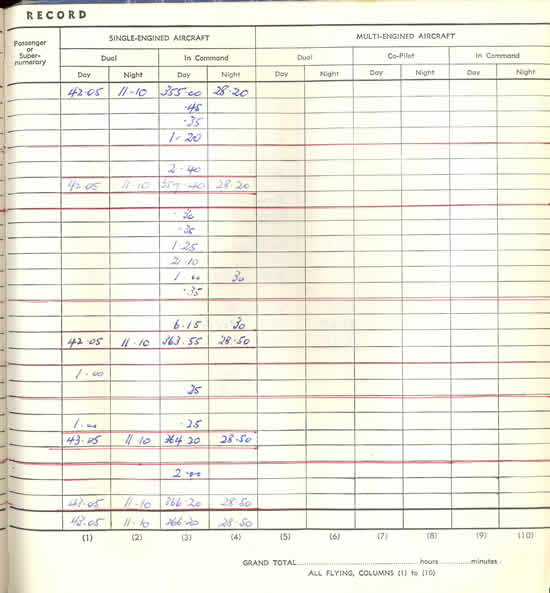 RECORD
Passenger or Super- numerary
SINGLE-ENGINED AIRCRAFT MULTI-ENGINED AIRCRAFT
Dual In Command Dual Co-Pilot In Command
Day Night Day Night Day Night Day Night Day Night
42.05 11-10 355.00 28.20
.45
.35
1-20
2-40
42.05 11-10 357.40 28.20
.30
.35
1.25
2.10
1.00 30
.35
6.15 .30
42.05 11.10 363.55 28.50
1.00
25
1.00 .25
43.05 11.10 364 20 28.50
2.00
43.05 11-10 366.20 28.50
43.05 11-10 366.20 28.50
(1) (2) (3) (4) (5) (6) (7) (8) (9) (10)
GRAND TOTAL hours minutes
ALL FLYING, COLUMNS (1) to (10)